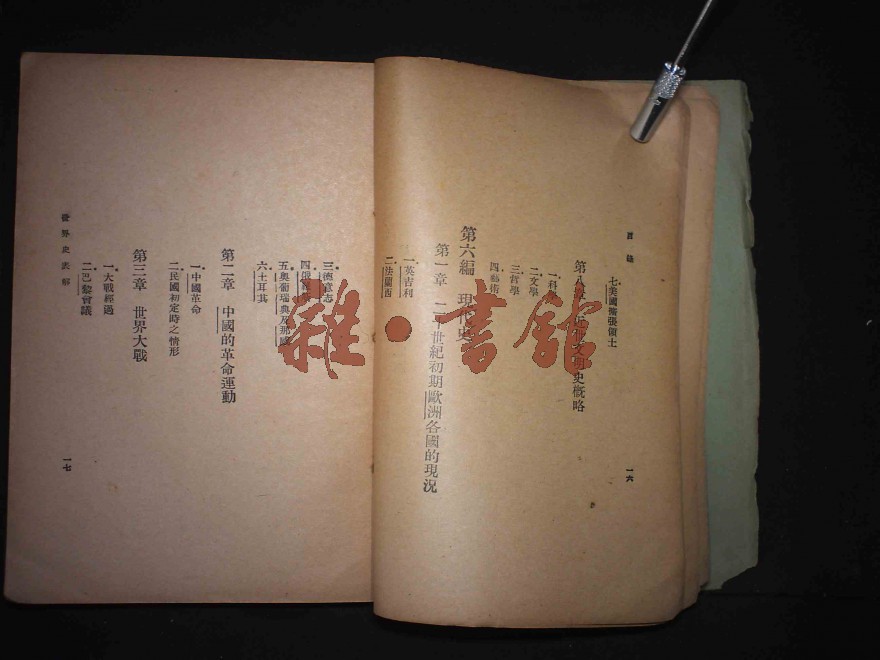 目錄
七 美國擴張領土
第八章 近世文明史概略
一 科學
二 文學
三 哲學
四 藝術
第六編 現代史
第一章 二十世紀初期歐洲各國的現況
一 英吉利
二 法蘭西
一六
三 德意志
四 俄羅斯
五 奧匈瑞典及那威
六 土耳其
第二章 中國的革命運動
一 中國革命
二 民國初定時之情形
第三章 世界大戰
一 大戰經過
二 巴黎會議
世界史表解
一七
雜·書館